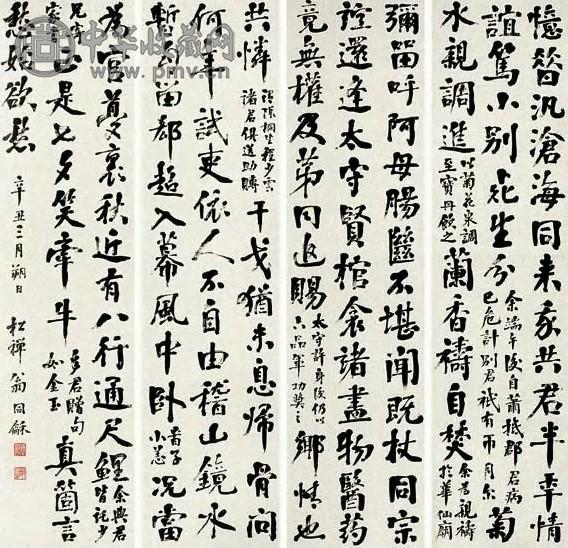 憶昔汎滄海同来我共君半年情
誼篤小別死生分余端午後自蒲抵郡君病已危計別君祇有兩月餘菊
水親調進以菊花泉調至寶丹飲之蘭香禱自焚余為親禱於華仙廟
彌留呼阿母腸斷不堪聞既杖同宗
誼還逢太守賢棺衾諸盡物醫藥
竟無權及第同追賜太守許身後仍以六品軍功獎之鄉情也
共憐謂陳桐生程少雲諸君俱道助賻干戈猶未息歸骨問
何年試吏依人不自由稽山鏡水
暫句留郄超入幕風中卧小恙况當
官裏秋近有八行通尺鯉余與君皆託少
兄寄家書正是七夕笑牽牛多君贈句如金玉真箇言
愁始欲愁
辛丑三月朔日 松禪翁同龢
中华收藏网
www.pmv.cn